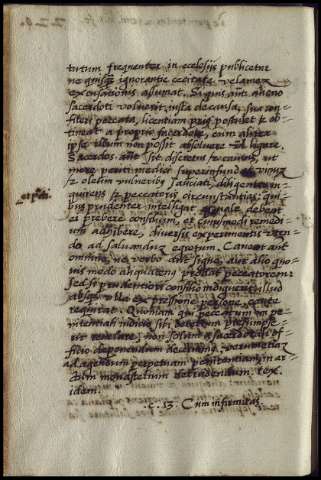 tutum frequenter in ecclesijs publicetur
ne quisq̃ ignorantie cecitate velamen
excusationis assumat. Si quis aũt alieno
sacerdoti voluerit iusta de causa, sua con=
fiteri peccata, licentiam prius postulet & ob=
tineat a proprio sacerdote, cum aliter
ipse illum non possit absoluere vel ligare.
Sacerdos aũt sit discretus & cautus, ut
more periti medici superinfundat vinum
& oleum vulneribus sauciati, diligenter in=
quirens & peccatoris circunstantias, qui
bus prudenter intelligat quale debeat
ei prebere consilium, et cuiusmodi remedium
adhibere, diversis experimentis uten=
do ad saluandum egrotum. Caueat aũt
omnino, ne verbo aut signo, aut alio quo=
uis modo aliquatenus prodat peccatorem:
sed si prudentiori consilio indiguerit, illud
absq̃ ulla expressione persone caute
requirat. Quoniam qui peccatum in pe=
nitentiali iudicio sibi detectum presumpse=
rit reuelare, non solum a sacerdotali of=
ficio deponendum decernimus, verumetiam
ad agendum perpetuam penitentiam in ar=
ctum monasterium detrudendum. tex.
idem.
.C. 13. Cum infirmitas.